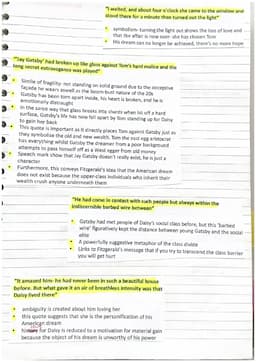 "I waited, and about four o'clock she came to the window and
stood there for a minute then turned out the light"
symbolism- turning the light out shows the loss of love and
that the affair is now over- she has chosen Tom
His dream can no longer be achieved, there's no more hope
"Jay Gatsby' had broken up like glass against Tom's hard malice and the
long secret extravaganza was played"
Simile of fragility- not standing on solid ground due to the deceptive
façade he wears as well as the boom-bust nature of the 20s
Gatsby has been torn apart inside, his heart is broken, and he is
emotionally distraught
In the same way that glass breaks into shards when hit off a hard
surface, Gatsby's life has now fell apart by Tom standing up for Daisy
to gain her back
This quote is important as it directly places Tom against Gatsby just as
they symbolise the old and new wealth. Tom the east egg aristocrat
has everything whilst Gatsby the dreamer from a poor background
attempts to pass himself off as a West egger from old money
Speech mark show that Jay Gatsby doesn't really exist, he is just a
character
Furthermore, this conveys Fitzgerald's idea that the American dream
does not exist because the upper-class individuals who inherit their
wealth crush anyone underneath them
"He had come in contact with such people but always within the
indiscernible barbed wire between"
Gatsby had met people of Daisy's social class before, but this 'barbed
wire' figuratively kept the distance between young Gatsby and the social
elite
A powerfully suggestive metaphor of the class divide
Links to Fitzgerald's message that if you try to transcend the class barrier
you will get hurt
"It amazed him- he had never been in such a beautiful house
before. But what gave it an air of breathless intensity was that
Daisy lived there"
ambiguity is created about him loving her
this quote suggests that she is the personification of his
American dream
for Daisy is reduced to a motivation for material gain
because the object of his dream is unworthy of his power